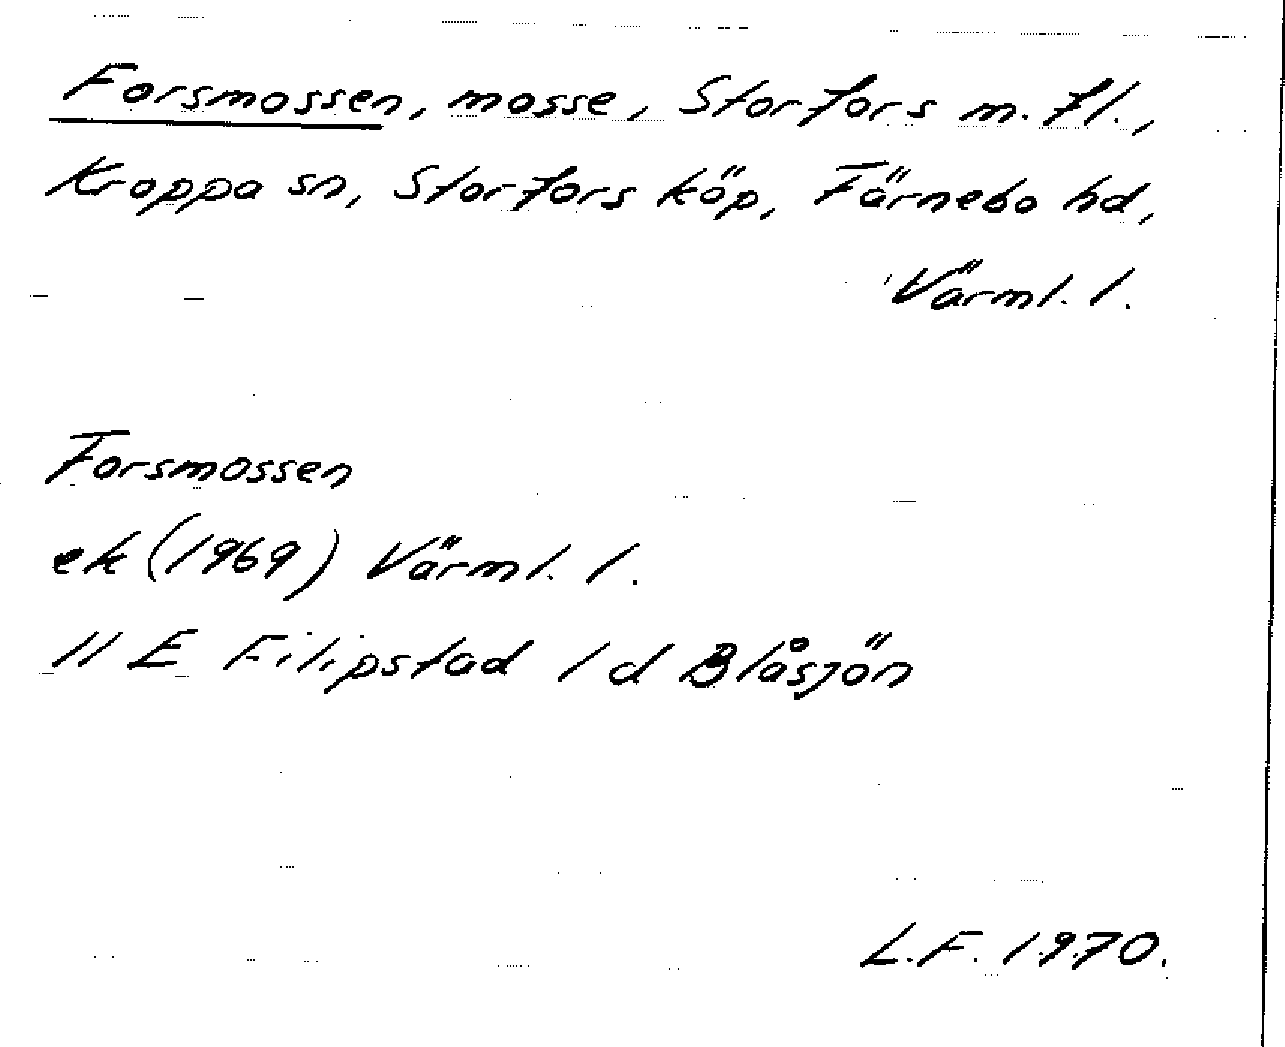 Forsmossen, mosse, Storfors m. fl.,
Kroppa sn, Storfors köp, Färnebo hd,
Värml. l.
Forsmossen
ek (1969) Värml. l.
11 E Filipstad 1 d Blåsjön
L.F. 1970.